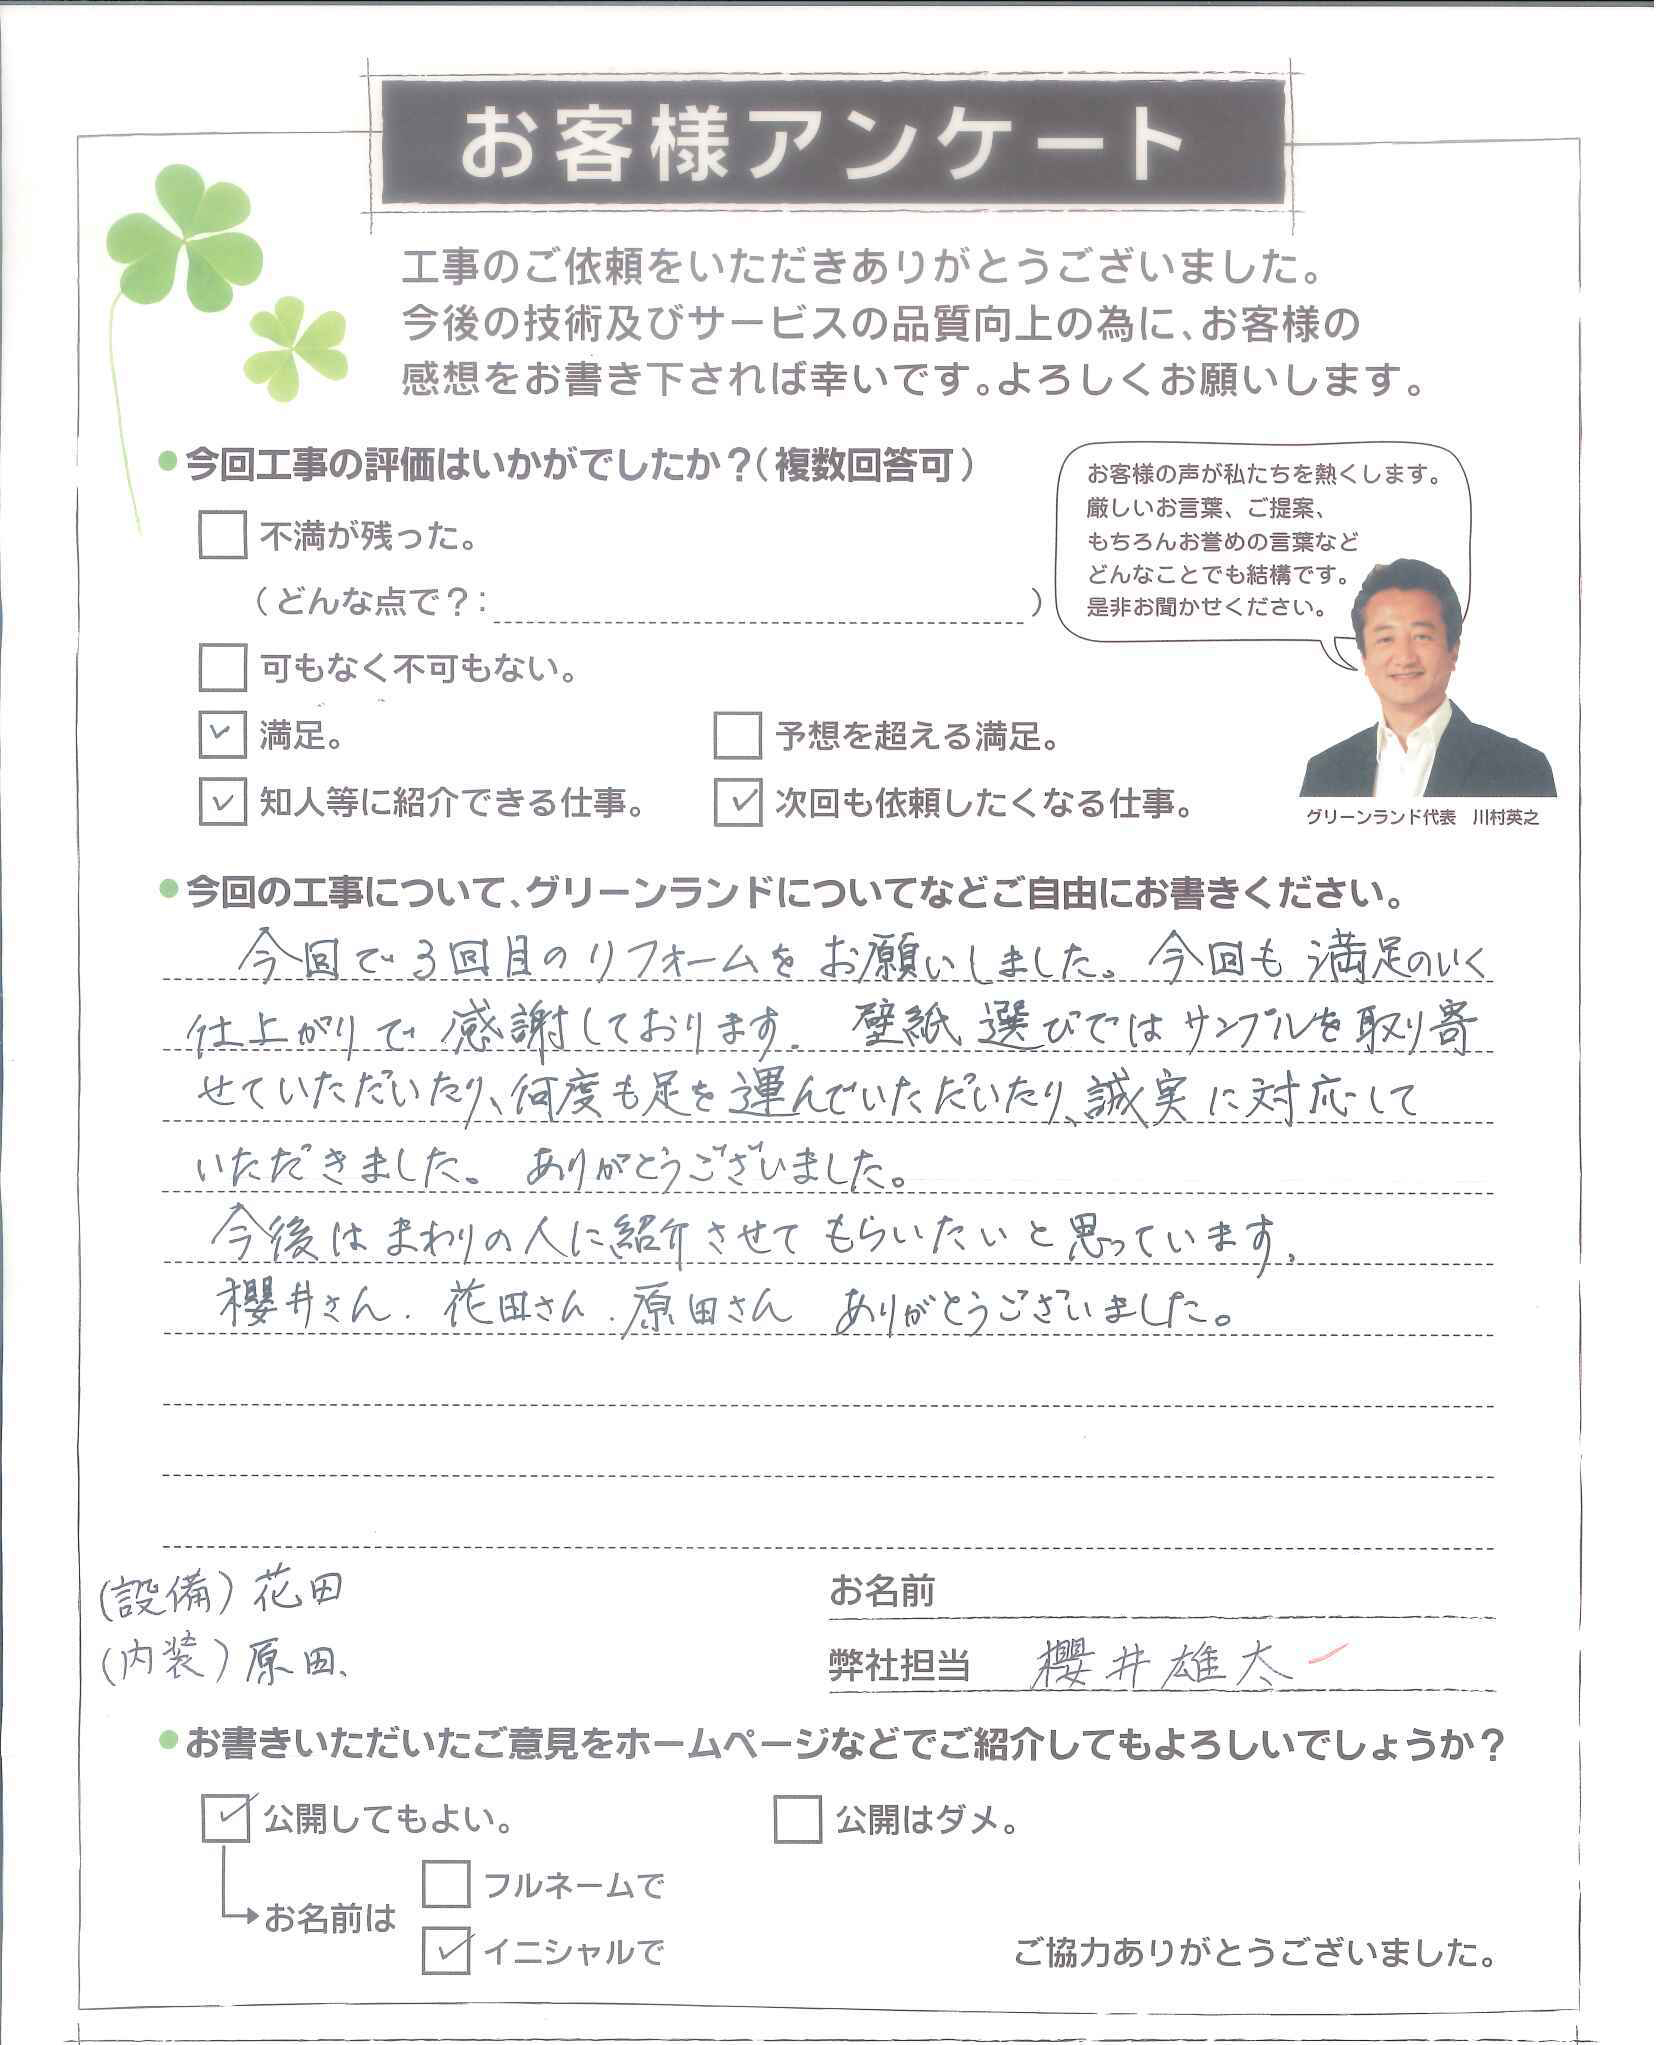 お客様アンケート
工事のご依頼をいただきありがとうございました。
今後の技術及びサービスの品質向上の為に、お客様の
感想をお書き下されば幸いです。よろしくお願いします。
●今回工事の評価はいかがでしたか？（複数回答可）
お客様の声が私たちを熱くします。
厳しいお言葉、ご提案、
もちろんお誉めの言葉など
どんなことでも結構です。
是非お聞かせください。
不満が残った。
（どんな点で？： ）
可もなく不可もない。
満足。 予想を超える満足。
知人等に紹介できる仕事。 次回も依頼したくなる仕事。
グリーンランド代表　川村英之
●今回の工事について、グリーンランドについてなどご自由にお書きください。
今回で3回目のリフォームをお願いしました。今回も満足のいく
仕上がりで感謝しております。壁紙選びではサンプルを取り寄
せていただいたり、何度も足を運んでいただいたり、誠実に対応して
いただきました。ありがとうございました。
今後はまわりの人に紹介させてもらいたいと思っています。
櫻井さん．花田さん．原田さん　ありがとうございました。
(設備)花田
(内装)原田、
お名前
弊社担当　櫻井雄太
●お書きいただいたご意見をホームページなどでご紹介してもよろしいでしょうか？
公開してもよい。 公開はダメ。
お名前は
フルネームで
イニシャルで
ご協力ありがとうございました。